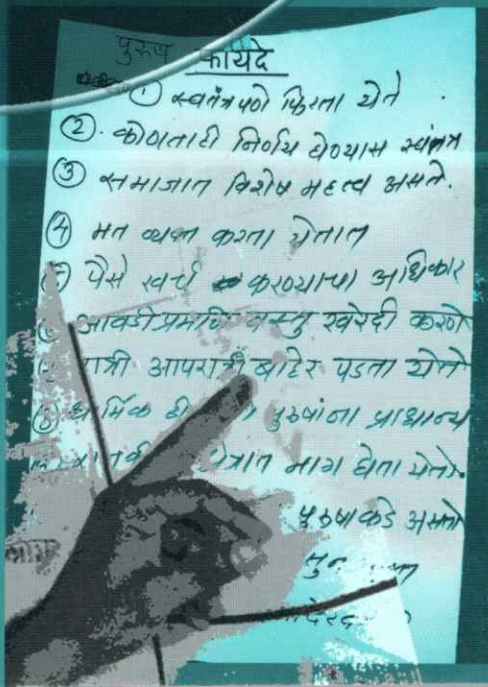 पुरुष फायदे
① स्वतंत्रपणे फिरता येते
②. कोणताही निर्णय घेण्यास स्वंतत्र
③ समाजात विशेष महत्त्व असते.
④ मत व्यक्त करता येतात
⑤ पैसे खर्च करण्याचा अधिकार
आवडीप्रमाणे वस्तु खरेदी करणे
रात्री आपरात्री बाहेर पडता येते
धार्मिक पुरुषांना प्राधान्य
क्षेत्रात भाग घेता येतो.
पुरुषाकडे असते